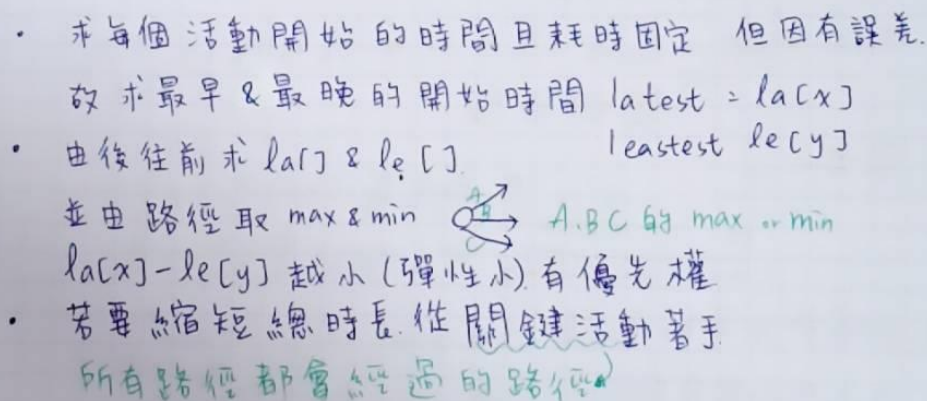 · 求每個活動開始的時間且耗時固定 但因有誤差.
故求最早&最晚的開始時間 latest = la[x]
leastest le[y]
· 由後往前求 la[] & le[].
並由路徑取 max & min A B C A.B C 的 max or min
la[x]-le[y] 越小(彈性小).有優先權
· 若要縮短總時長.從關鍵活動著手
所有路徑都會經過的路徑